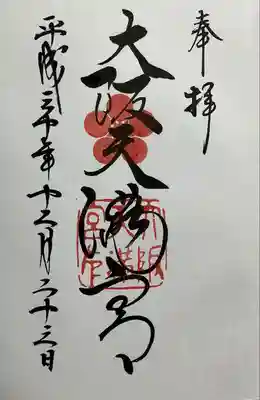 奉拝
大阪天満宮
平成三十年十二月二十三日